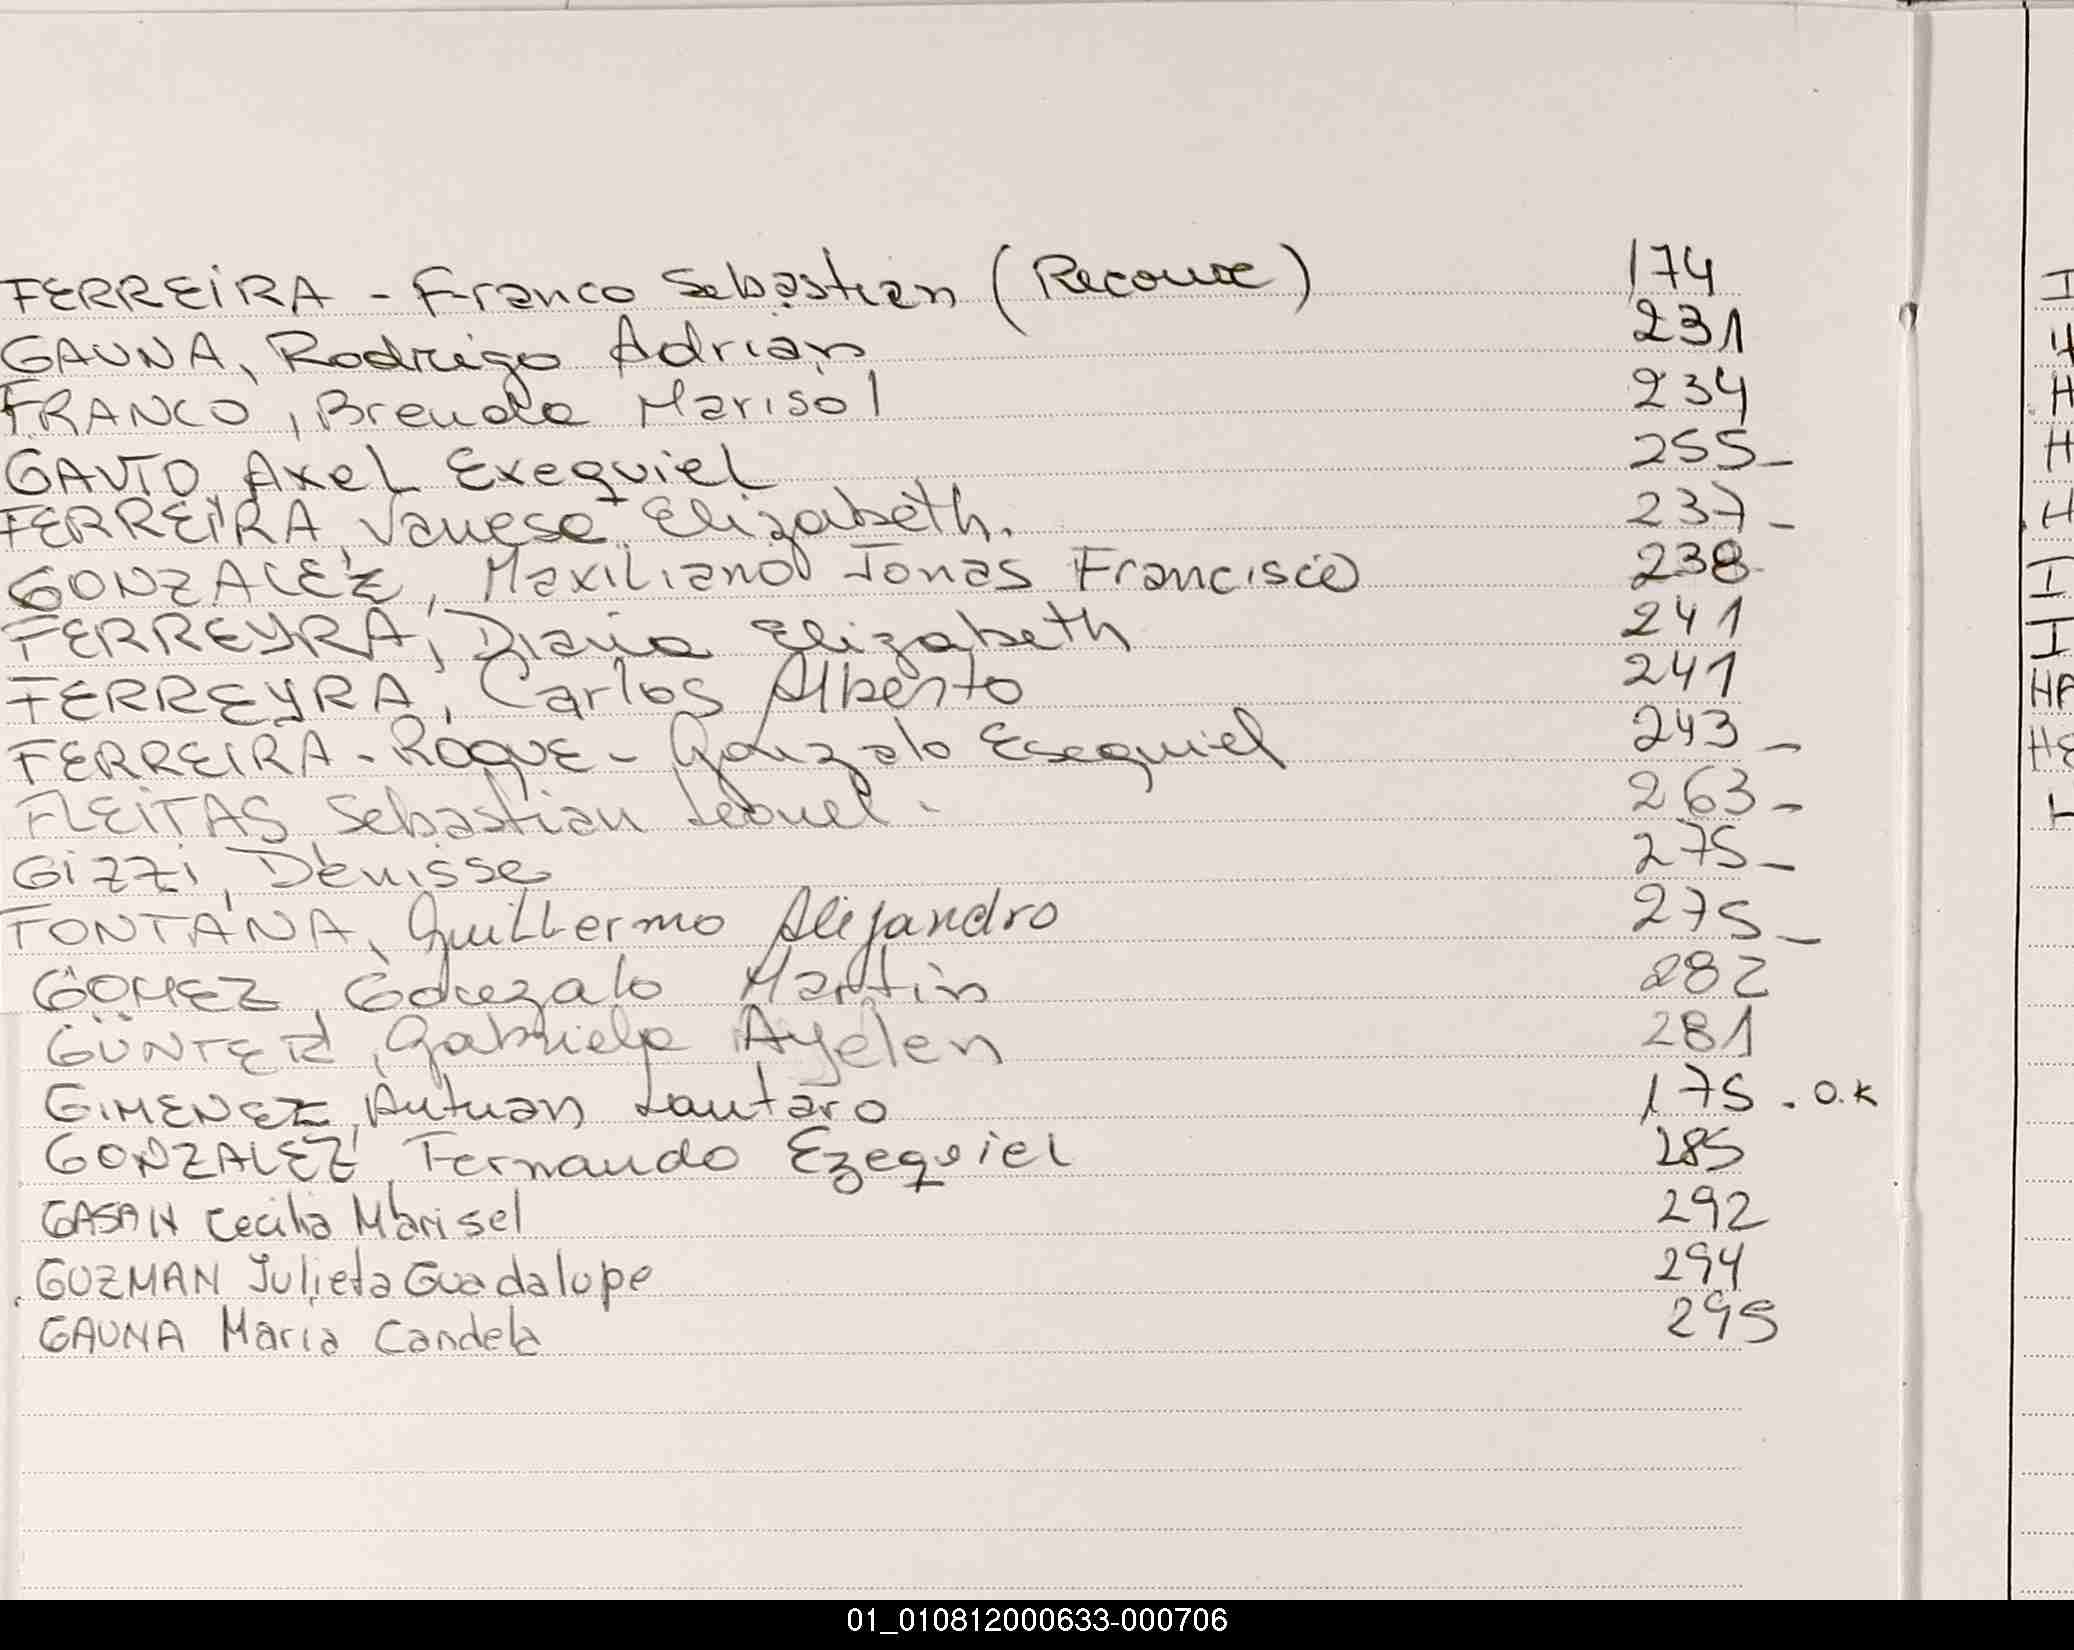 FERREIRA - Franco Sebastian (Reconoce) 174
GAUNA, Rodrigo Adrian 231
FRANCO, Brenda Marisol 234
GAUTO, Axel Exequiel 255-
FERREIRA, Vanesa Elizabeth. 237-
GONZALEZ, Maxiliano Jonas Francisco 238
FERREYRA, Diana Elizabeth 241
FERREYRA, Carlos Alberto 241
FERREIRA - ROQUE - Gonzalo Esequiel 243-
FLEITAS Sebastian Leonel - 263-
GIZZI, Denisse 275-
FONTANA, Guillermo Alejandro 275-
GOMEZ, Gonzalo Martin 282
GÜNTER, Gabriela Ayelen 281
GIMENEZ, Antuan Lautaro 175 - O.K
GONZALEZ, Fernando Ezequiel 285
GASAN Cecilia Marisel 292
GUZMAN Julieta Guadalupe 294
GAUNA Maria Candela 295
I
H
H
H
H
I
I
HA
HE
01_010812000633-000706